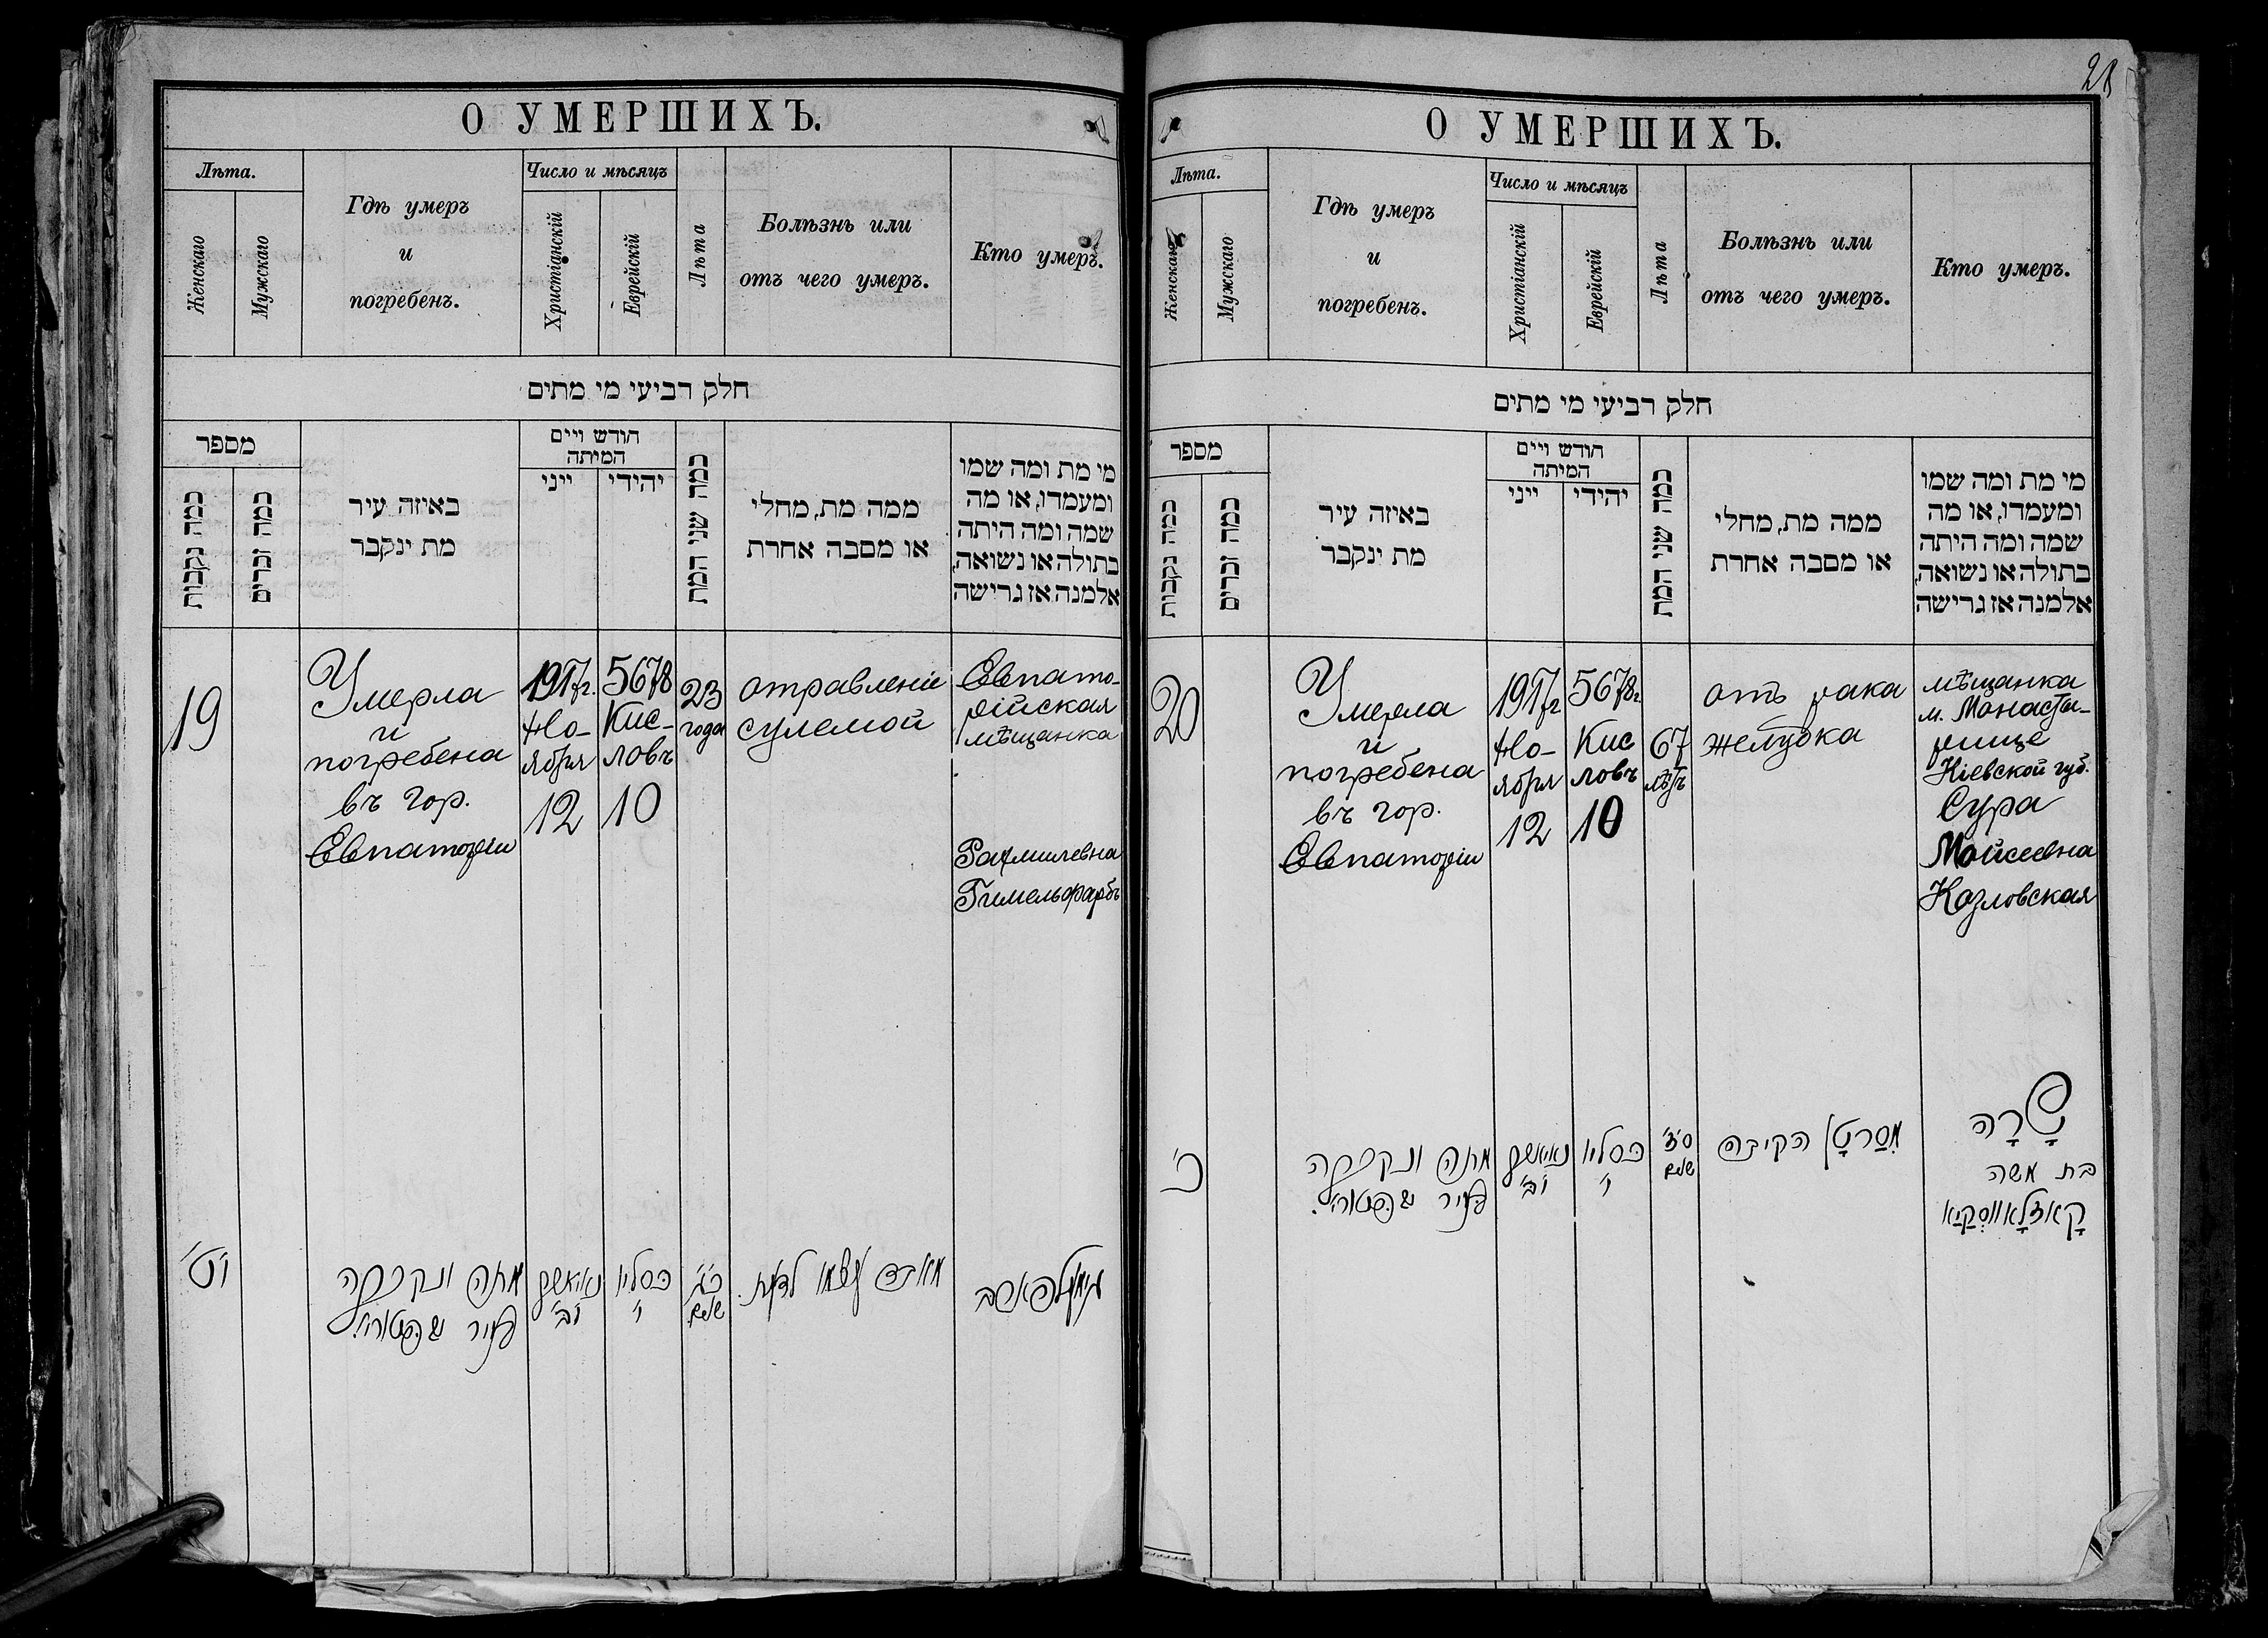 О УМЕРШИХЪ.
Лѣта.
Женскаго
Мужскаго
Гдѣ умеръ
и
погребенъ.
Число и мѣсяцъ
Христіанскій
Еврейскій
Лѣта
Болѣзнь или
отъ чего умеръ.
Кто умеръ.
חלק רביעי מי מתים
מספר
כמה נקבות
כמה זכרים
באיזה עיר
מת ינקבר
חודש ויים
המיתה
ייני
יהידי
כמה שני המת
ממה מת, מחלי
או מסבה אחרת
מי מת ומה שמו
ומעמדו, או מה
שמה ומה היתה
בתולה או נשואה,
אלמנה אז גרישה
19
Умерла
и
погребена
въ гор.
Евпаторіи
1917г.
Но-
ября
12
5678
Кис-
ловъ
10
23
года
отравленіе
сулемой
Евпато-
рійская
мѣщанка
Рахмилевна
Гимельфарбъ
י״ט
מתה ונקברה
בעיר
י״ב
כסליו
י׳
כ״ג
שנים
גימעלפארב
21
О УМЕРШИХЪ.
Лѣта.
Женскаго
Мужскаго
Гдѣ умеръ
и
погребенъ.
Число и мѣсяцъ
Христіанскій
Еврейскій
Лѣта
Болѣзнь или
отъ чего умеръ.
Кто умеръ.
חלק רביעי מי מתים
מספר
כמה נקבות
כמה זכרים
באיזה עיר
מת ינקבר
חודש ויים
המיתה
ייני
יהידי
כמה שני המת
ממה מת, מחלי
או מסבה אחרת
מי מת ומה שמו
ומעמדו, או מה
שמה ומה היתה
בתולה או נשואה,
אלמנה אז גרישה
20
Умерла
и
погребена
въ гор.
Евпаторіи
1917г
Но-
ября
12
5678г.
Кис
ловъ
10
67
лѣтъ
отъ рака
желудка
мѣщанка
м. Монасты-
рище
Кіевской губ.
Сура
Мойсеевна
Козловская
כ׳
מתה ונקברה
בעיר
י״ב
כסליו
י׳
ס״ז
שנים
מסרטן הקיבה
שרה
בת משה
קאזלאווסקיא